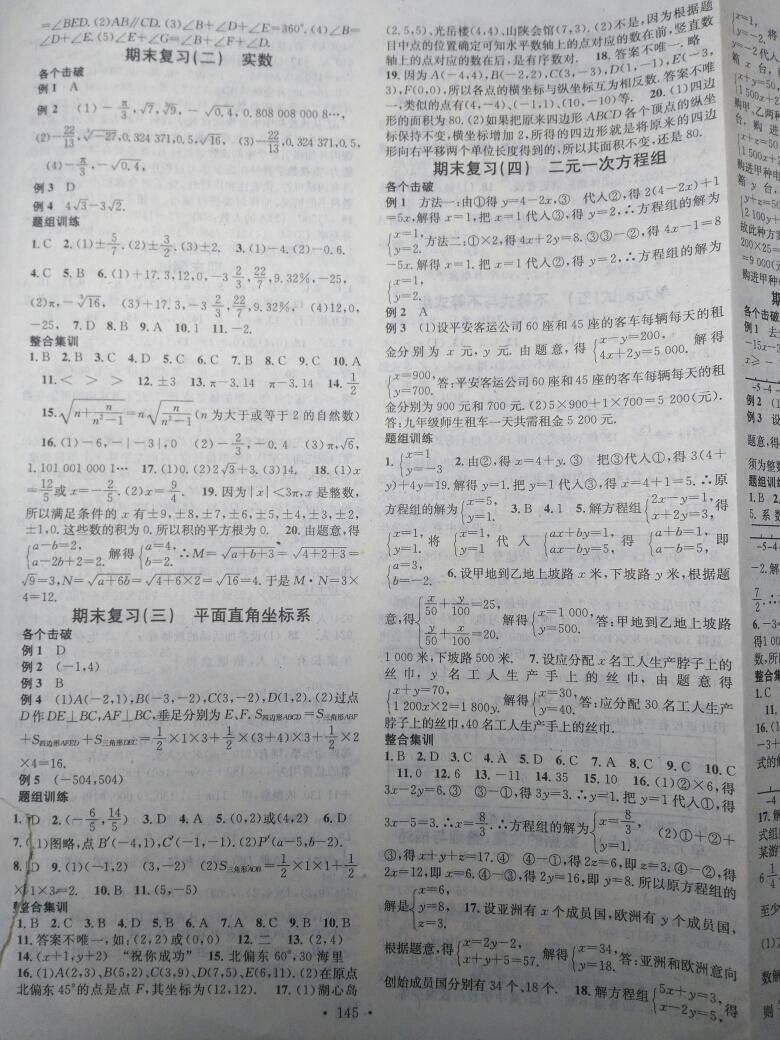 =∠BED. (2)AB∥CD. (3)∠B+∠D+∠E=360°. (4)∠B=
∠D+∠E. (5)∠E+∠G=∠B+∠F+∠D.
期末复习(二) 实数
各个击破
例1 A
例2 (1)-π/3,√7,√9,-√0.4,0.808 008 000 8…,
(2)-22/13,∛-27,0.324 371,0.5,√16, (3)-22/13,0.324 371,0.5,
(4)-π/3,-√0.4,
例3 D
例4 4√3-3√2.
题组训练
1. C 2. (1)±5/7. (2)±3/2. (3)±2. 3. (1)-4. (2)-0.6.
4. C 5. B 6. (1)+17.3,12,0,-3 2/3,22/7,9.32%,-25,
(2)π,-∛16, (3)+17.3,-3 2/3,22/7,9.32%, (4)12,0,
-25, 7. D 8. B 9. A 10. 1 11. -2.
整合集训
1. B 2. B 3. C 4. D 5. C 6. C 7. B 8. C 9. C 10. A
11. < > > 12. ±3 13. π-3.14 π-3.14 14. 1/2
15. √(n+n/(n²-1))=n√(n/(n²-1))(n为大于或等于2的自然数)
16. (1)-6,-|-3|,0 (2)-2/3,-0.4 (3)π,√6,
1.101 001 000 1… 17. (1)0. (2)2√3+3. (3)14. 18. (1)x=
12/5或x=-2/5. (2)x=9/4. 19. 因为|x|<3π,x是整数,
所以满足条件的x有±9,±8,±7,±6,±5,±4,±3,±2,
±1,0.这些数的积为0.所以积的平方根为0. 20. 由题意,得
{a-b=2, a-2b+2=2. 解得{a=4, b=2. ∴M=√(a+b+3)=√(4+2+3)=
√9=3,N=√(a+6b)=√(4+6×2)=√16=4.于是M·N=3×
4=12.
期末复习(三) 平面直角坐标系
各个击破
例1 D
例2 (-1,4)
例3 B
例4 (1)A(-2,1),B(-3,-2),C(3,-2),D(1,2). (2)过点
D作DE⊥BC,AF⊥BC,垂足分别为E,F. S四边形ABCD=S三角形ABF
+S四边形AFED+S三角形DEC=1/2×1×3+1/2×(3+4)×3+1/2×2
×4=16.
例5 (-504,504)
题组训练
1. D 2. (-6/5,14/5) 3. D 4. A 5. (0,2)或(4,2) 6. D
7. (1)图略,点B′(-4,1),C′(-1,-1). (2)P′(a-5,b-2).
8. D 9. (1)(-1,2) (3,-2) (2)S三角形AOB=1/2×1×1+1/2
×1×3=2. 10. B 11. (5,-5)
整合集训
1. B 2. C 3. B 4. D 5. A 6. A 7. A 8. C 9. B 10. B
11. 答案不唯一,如:(2,2)或(0,0) 12. 二 13. (2,4)
14. (x+1,y+2) “祝你成功” 15. 北偏东60°,30海里
16. (1)A(2,3),B(5,2),C(3,9),D(7,5),E(6,11). (2)在原点
北偏东45°的点是点F,其坐标为(12,12). 17. (1)湖心岛
(2.5,5),光岳楼(4,4),山陕会馆(7,3). (2)不是,因为根据题
目中点的位置确定可知水平数轴上的点对应的数在前,竖直数
轴上的点对应的数在后,是有序数对. 18. 答案不唯一,略
19. 因为A(-4,4),B(-2,2),C(3,-3),D(1,-1),E(-3,
3),F(0,0),所以各点的横坐标与纵坐标互为相反数.答案不唯
一,类似的点有(4,-4)、(-1,1)、(10,-10)等. 20. (1)四边
形的面积为80. (2)如果把原来四边形ABCD各个顶点的纵坐
标保持不变,横坐标增加2,所得的四边形就是将原来的四边
形向右平移两个单位长度得到的,所以其面积不变,还是80.
期末复习(四) 二元一次方程组
各个击破
例1 方法一:由①得y=4-2x,③ 代入②,得2(4-2x)+1
=5x,解得x=1,把x=1代入③,得y=2,∴方程组的解为
{x=1, y=2. 方法二:①×2,得4x+2y=8.③③-②,得4x-1=8
-5x.解得x=1.把x=1代入②,得y=2,∴方程组的解为
{x=1, y=2.
例2 A
例3 (1)设平安客运公司60座和45座的客车每辆每天的租
金分别为x元,y元.由题意,得{x-y=200, 4x+2y=5 000. 解得
{x=900, y=700. 答:平安客运公司60座和45座的客车每辆每天的租
金分别为900元和700元. (2)5×900+1×700=5 200(元).
答:九年级师生租车一天共需租金5 200元.
题组训练
1. {x=1 y=-3 2. 由②,得x=4+y.③ 把③代入①,得3(4+
y)+4y=19.解得y=1.把y=1代入③,得x=4+1=5.∴原
方程组的解为{x=5, y=1. 3. B 4. 1 5. 解方程组{2x-y=1, x+2y=3,得
{x=1, y=1. 将{x=1, y=1 代入{ax+by=1, ax-by=5,得{a+b=1, a-b=5, 即
{a=3, b=-2. 6. 设甲地到乙地上坡路x米,下坡路y米,根据题
意,得{x/50+y/100=25, y/50+x/100=20. 解得{x=1 000, y=500. 答:甲地到乙地上坡路
1 000米,下坡路500米. 7. 设应分配x名工人生产脖子上的
丝巾,y名工人生产手上的丝巾,由题意得
{x+y=70, 1 200x×2=1 800y. 解得{x=30, y=40. 答:应分配30名工人生产
脖子上的丝巾,40名工人生产手上的丝巾.
整合集训
1. B 2. D 3. C 4. A 5. D 6. D 7. B 8. C 9. C 10. C
11. 0 12. 6 13. -11 14. 35 15. 10 16. (1)②×6,得
3x-2y=6.③ ③-①,得3y=3.∴y=1.把y=1代入①,得
3x-5=3.∴x=8/3.∴方程组的解为{x=8/3, y=1. (2)①+②+
③,得x+y+z=17.④ ④-①,得2z=6,即z=3.④-②,得
2x=12,即x=6.④-③,得2y=16,即y=8.所以原方程组的
解是{x=6, y=8, z=3. 17. 设亚洲有x个成员国,欧洲有y个成员国,
根据题意,得{x=2y-2, x+y+5=57. 解得{x=34, y=18. 答:亚洲和欧洲意向
创始成员国分别有34个、18个. 18. 解方程组{5x+y=3, x-2y=5,得
·145·